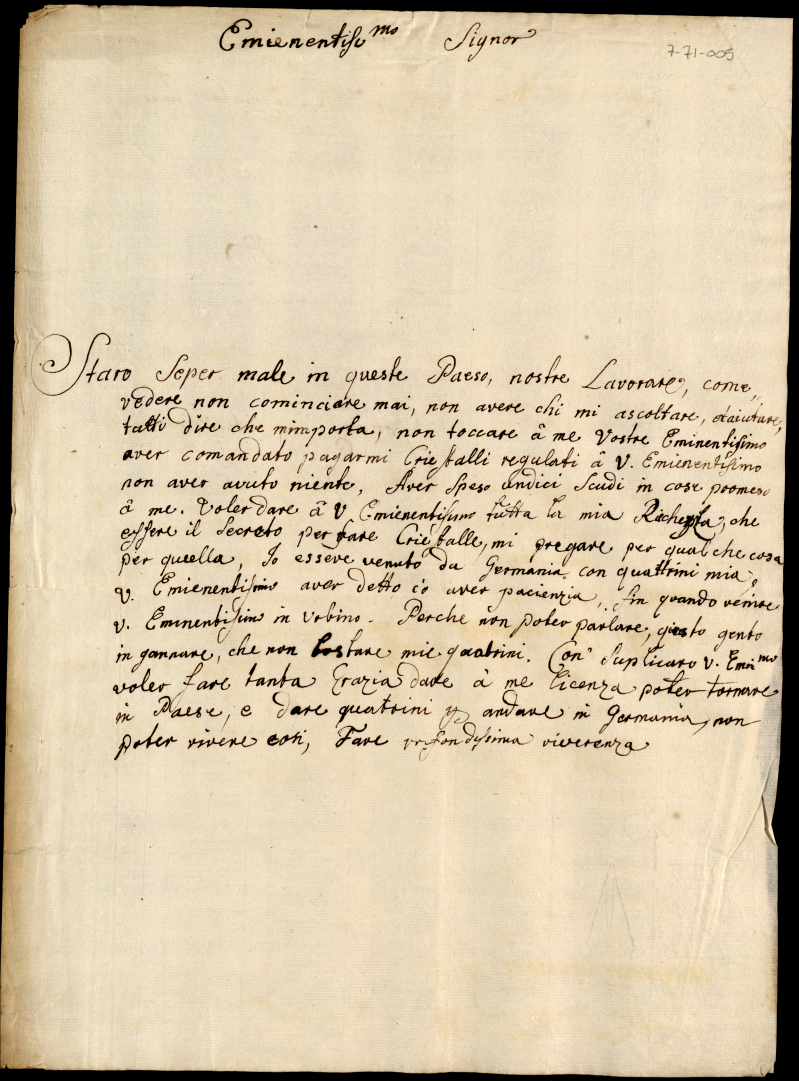 Emienentisi^mo Signor
7-71-005
Staro Seper male in queste Paeso, nostre Lavorare, come,
vedere non cominciare mai, non avere chi mi ascoltare, et aiutare,
tutti dire che mimporta, non toccare â me Vostre Eminentisimo
aver comandato pagarmi Criestalli regulati â V. Emienentisimo
non aver avuto niente, Aver Speso undici Scudi in cose promeso
â me. Voler dare â V Emienentisimo tutta la mia Richezza, che
essere il Secreto per fare Criestalle, mi pregare per qualche cosa
per queella, Io esseve venuto da Germania con quattrini mia,
V. Emienentisimo aver detto io aver pacienzia, fin quando venire
V. Eminentisimo in Urbino. Perche non poter parlare, questo gento
in gannare, che non bostare mie quatrini. Con Suplicaro V. Emi^mo
voler fare tanta Grazia dare â me licenza poter tornare
in Paese, e dare quatrini andare in Germania, non
poter vivere cosi, Fare profondissima riverenza